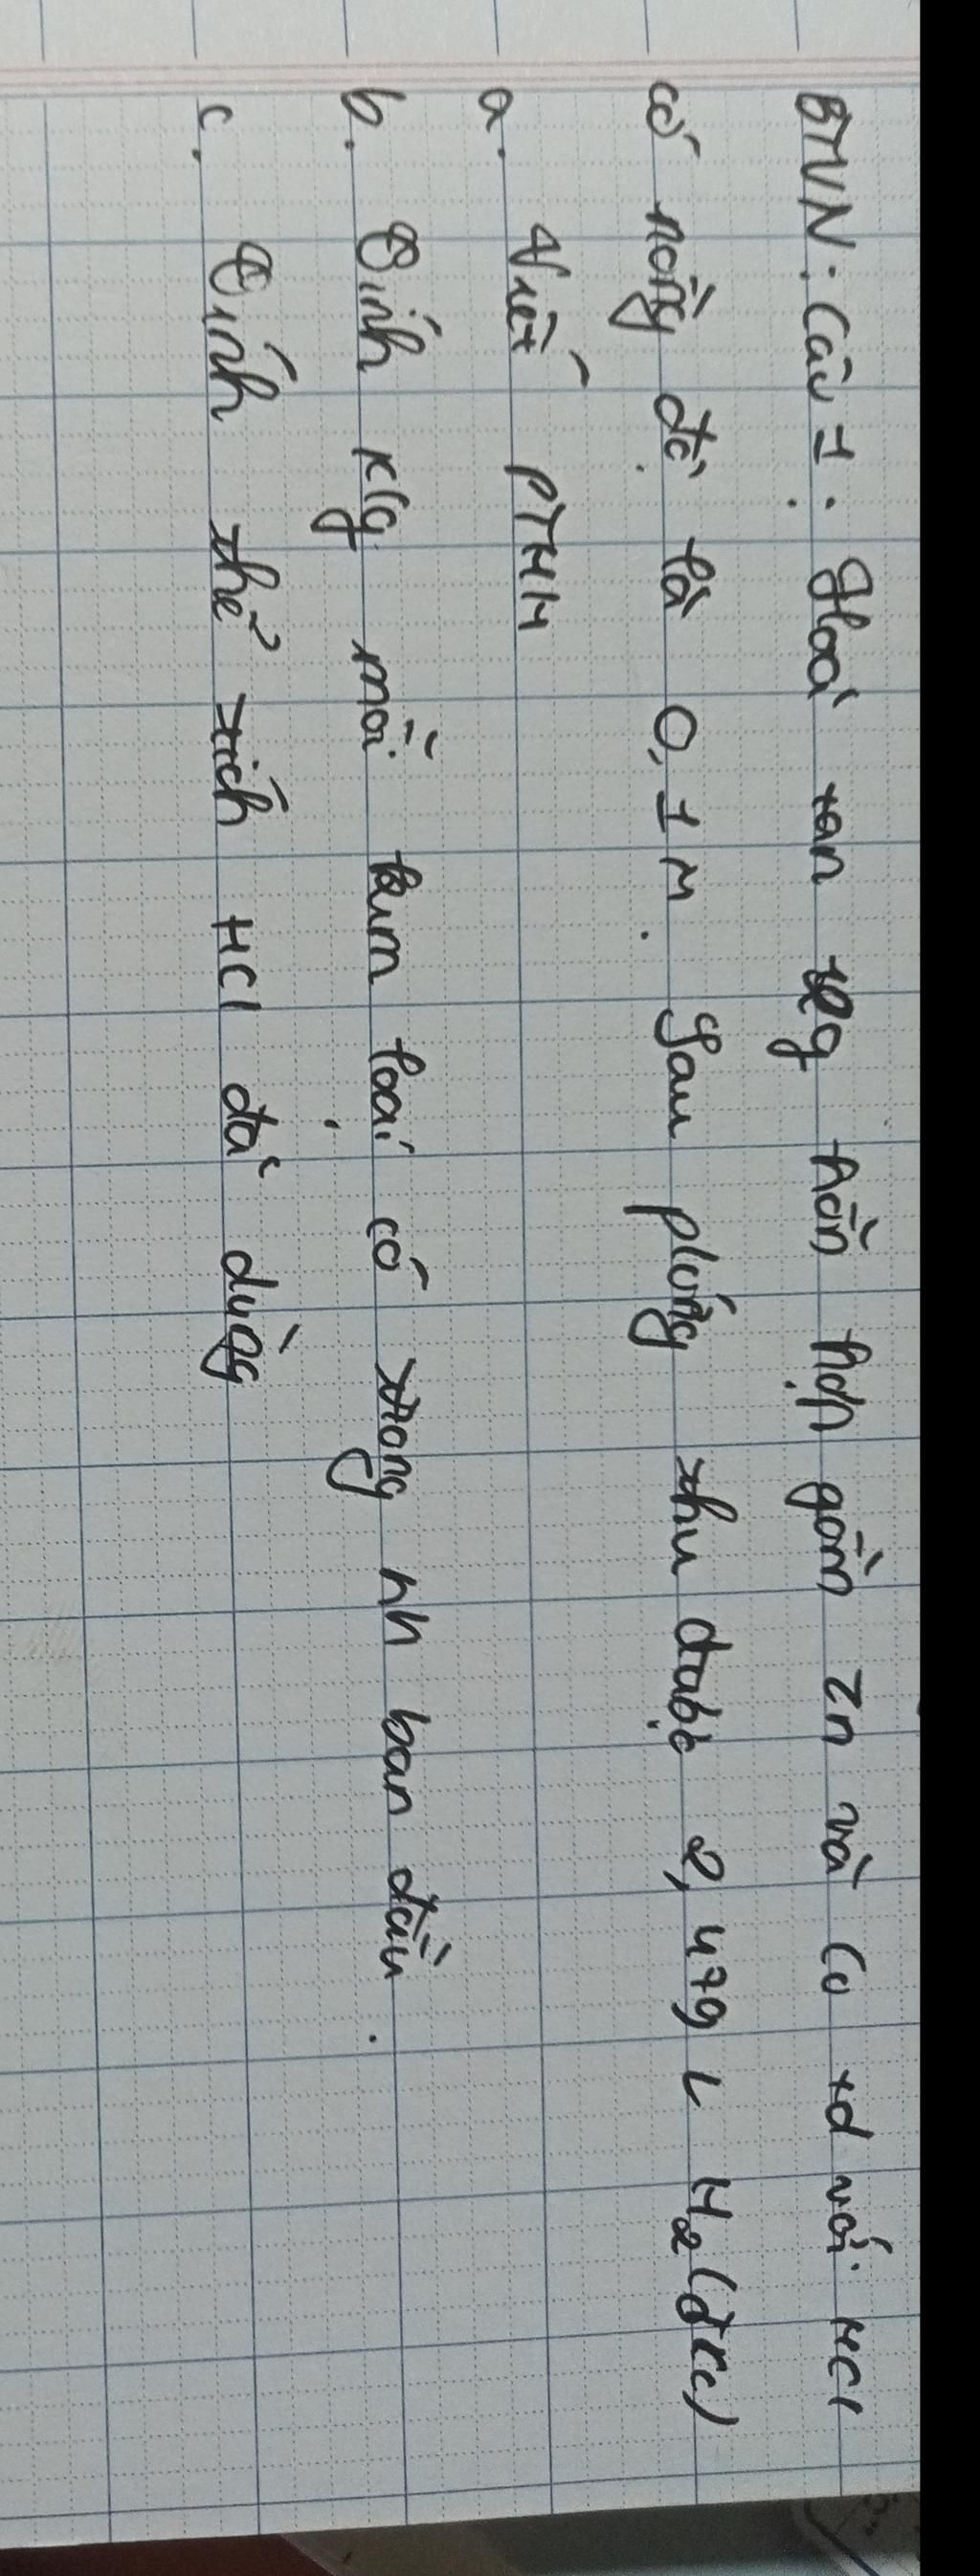 BTVN: Câu 1: Hoà tan hỗn hợp gồm Zn và Cu td với HCl
có nồng độ là 0,1M. Sau pứng thu được 2,479 L H2 (đkc)
a. Viết PTHH
b. Tính klg mỗi kim loại có trong hh ban đầu.
c. Tính thể tích HCl đã dùng